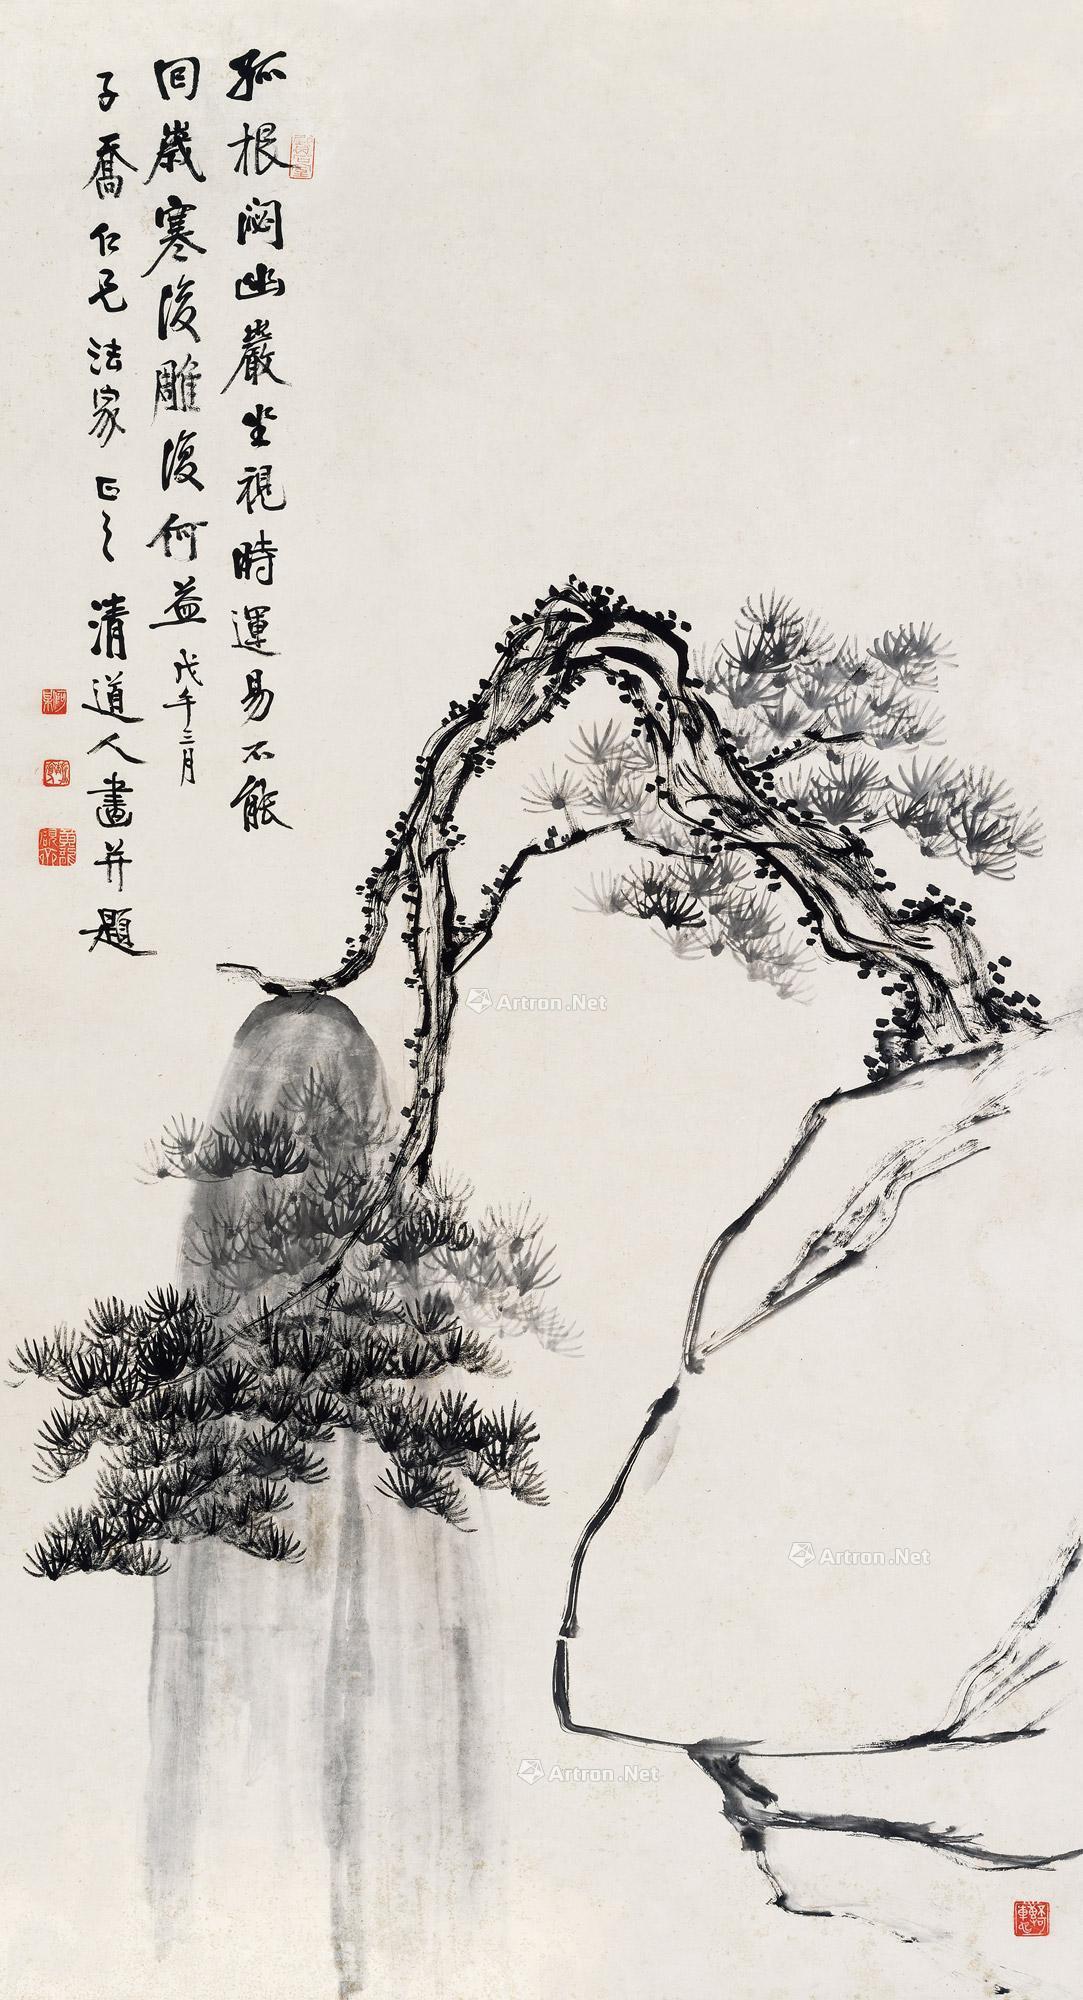 孤根閟幽巖坐視時運易不能
回歲寒後雕復何益戊午三月
子喬仁兄法家正之清道人畫并題
Artron.Net
Artron.Net
Artron.Net